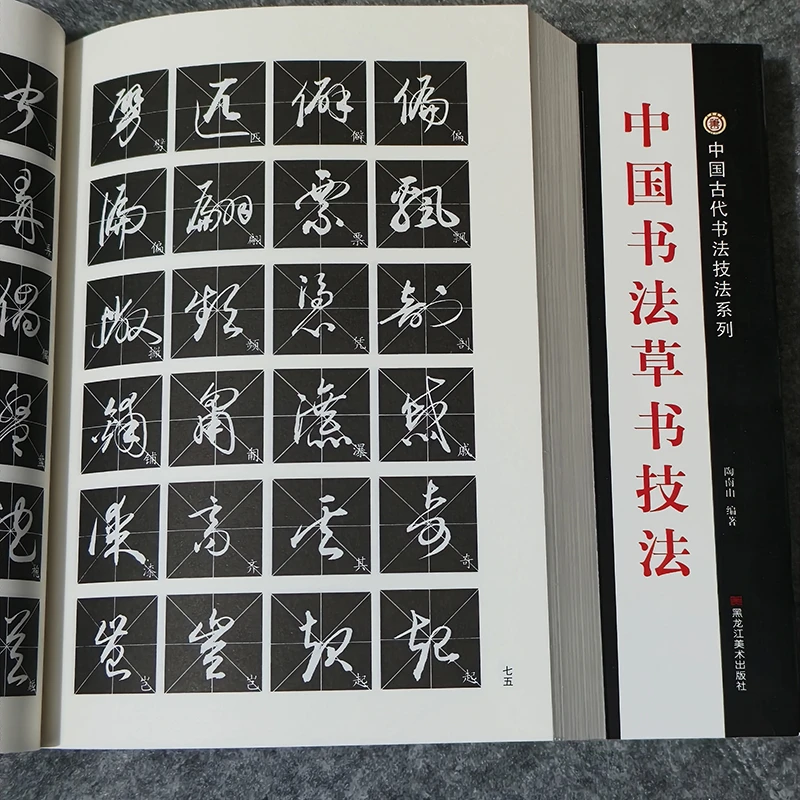 劈 匹 僻 偏
偏 翩 票 飘
撇 频 凭 剖
铺 甫 瀑 戚
漆 齐 其 奇
岂 岂 起 起
七五
中国书法草书技法
中国古代书法技法系列
陶南山 编著
黑龙江美术出版社